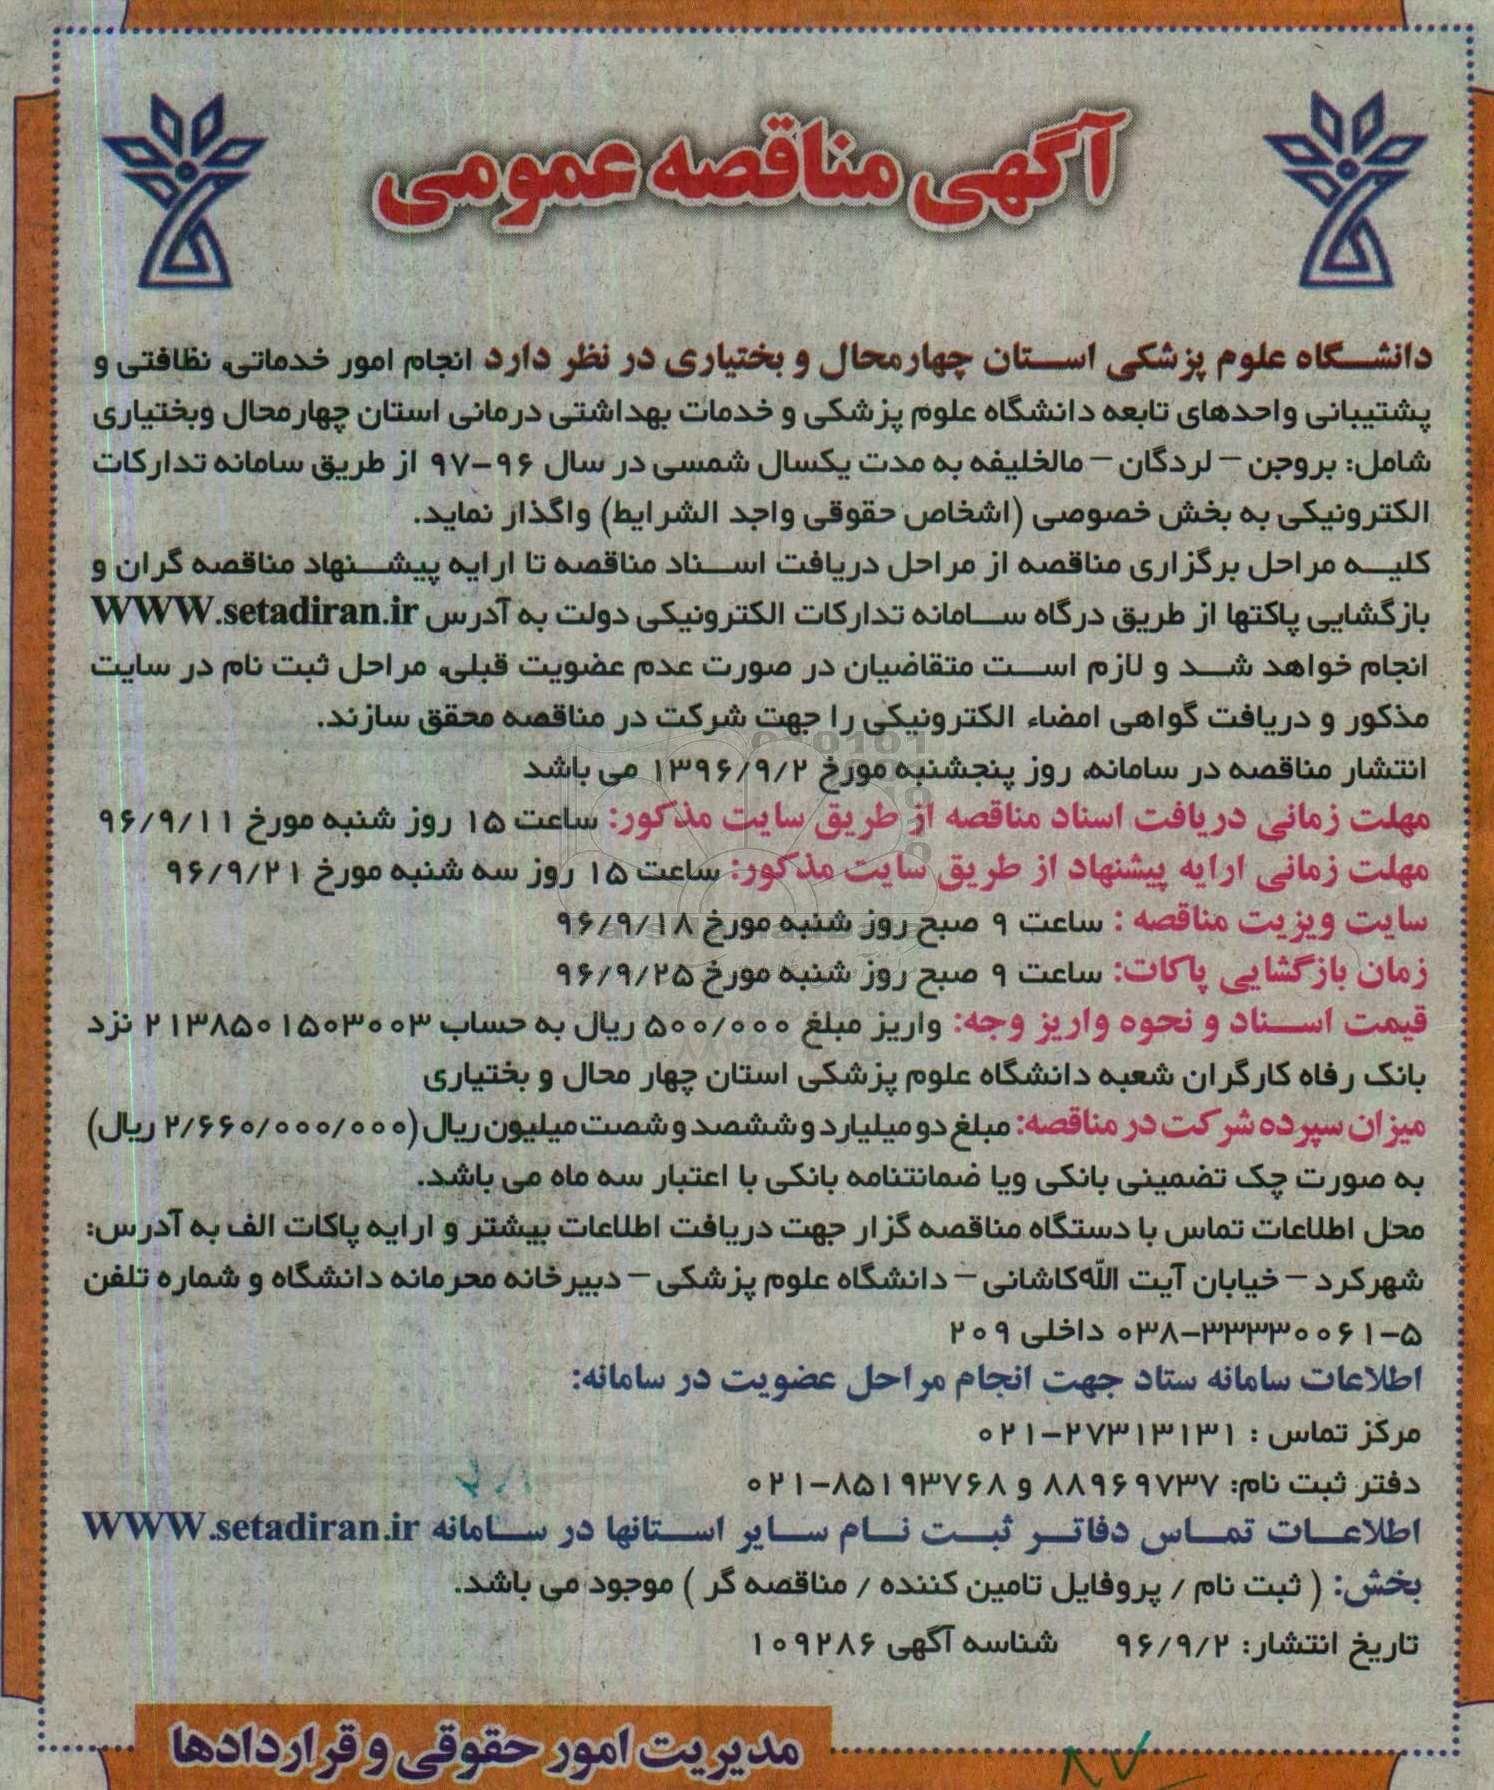 آگهی مناقصه عمومی
دانشگاه علوم پزشکی استان چهارمحال و بختیاری در نظر دارد انجام امور خدماتی، نظافتی و
پشتیبانی واحدهای تابعه دانشگاه علوم پزشکی و خدمات بهداشتی درمانی استان چهارمحال وبختیاری
شامل: بروجن – لردگان – مالخلیفه به مدت یکسال شمسی در سال ۹۶-۹۷ از طریق سامانه تدارکات
الکترونیکی به بخش خصوصی (اشخاص حقوقی واجد الشرایط) واگذار نماید.
کلیه مراحل برگزاری مناقصه از مراحل دریافت اسناد مناقصه تا ارایه پیشنهاد مناقصه گران و
بازگشایی پاکتها از طریق درگاه سامانه تدارکات الکترونیکی دولت به آدرس WWW.setadiran.ir
انجام خواهد شد و لازم است متقاضیان در صورت عدم عضویت قبلی، مراحل ثبت نام در سایت
مذکور و دریافت گواهی امضاء الکترونیکی را جهت شرکت در مناقصه محقق سازند.
انتشار مناقصه در سامانه، روز پنجشنبه مورخ ۱۳۹۶/۹/۲ می باشد
مهلت زمانی دریافت اسناد مناقصه از طریق سایت مذکور: ساعت ۱۵ روز شنبه مورخ ۹۶/۹/۱۱
مهلت زمانی ارایه پیشنهاد از طریق سایت مذکور: ساعت ۱۵ روز سه شنبه مورخ ۹۶/۹/۲۱
سایت ویزیت مناقصه : ساعت ۹ صبح روز شنبه مورخ ۹۶/۹/۱۸
زمان بازگشایی پاکات: ساعت ۹ صبح روز شنبه مورخ ۹۶/۹/۲۵
قیمت اسناد و نحوه واریز وجه: واریز مبلغ ۵۰۰/۰۰۰ ریال به حساب ۲۱۳۸۵۰۱۵۰۳۰۰۳ نزد
بانک رفاه کارگران شعبه دانشگاه علوم پزشکی استان چهار محال و بختیاری
میزان سپرده شرکت در مناقصه: مبلغ دو میلیارد و ششصد و شصت میلیون ریال (۲/۶۶۰/۰۰۰/۰۰۰ ریال)
به صورت چک تضمینی بانکی ویا ضمانتنامه بانکی با اعتبار سه ماه می باشد.
محل اطلاعات تماس با دستگاه مناقصه گزار جهت دریافت اطلاعات بیشتر و ارایه پاکات الف به آدرس:
شهرکرد – خیابان آیت الله کاشانی – دانشگاه علوم پزشکی – دبیرخانه محرمانه دانشگاه و شماره تلفن
۰۳۸-۳۳۳۳۰۰۶۱-۵ داخلی ۲۰۹
اطلاعات سامانه ستاد جهت انجام مراحل عضویت در سامانه:
مرکز تماس : ۰۲۱-۲۷۳۱۳۱۳۱
دفتر ثبت نام: ۸۸۹۶۹۷۳۷ و ۰۲۱-۸۵۱۹۳۷۶۸
اطلاعات تماس دفاتر ثبت نام سایر استانها در سامانه WWW.setadiran.ir
بخش: ( ثبت نام / پروفایل تامین کننده / مناقصه گر ) موجود می باشد.
تاریخ انتشار: ۹۶/۹/۲ شناسه آگهی ۱۰۹۲۸۶
مدیریت امور حقوقی و قراردادها
۸۷